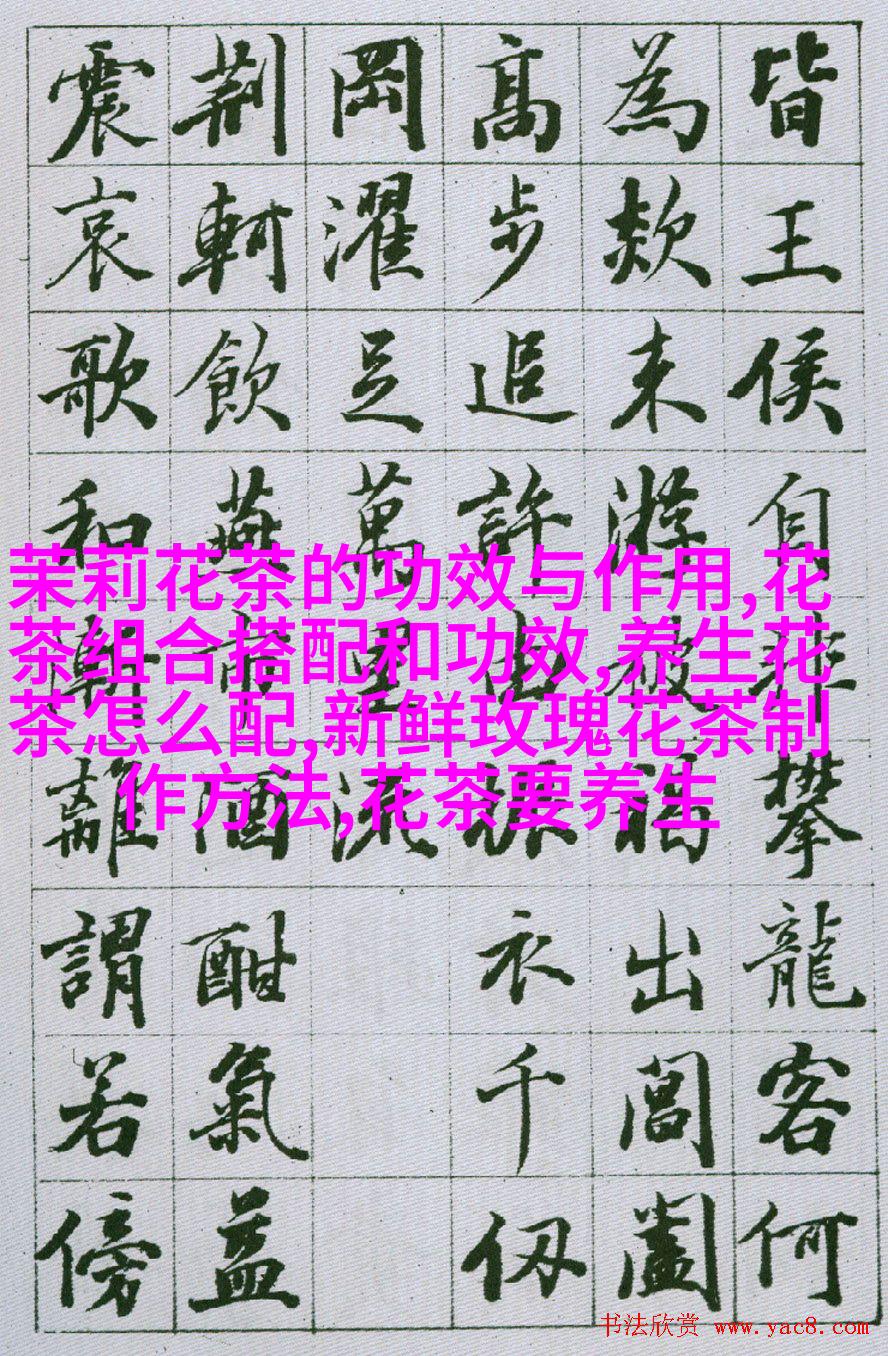 皆王侯自非攀龍客何
為欻来游被褐出閶闔
高步追許由振衣千仞
岡濯足萬里流
荊軻飲燕市酒酣氣益
震哀歌和漸離謂若傍
茉莉花茶的功效与作用,花
茶组合搭配和功效,养生花
茶怎么配,新鲜玫瑰花茶制
作方法,花茶要养生
书法欣赏 www.yac8.com